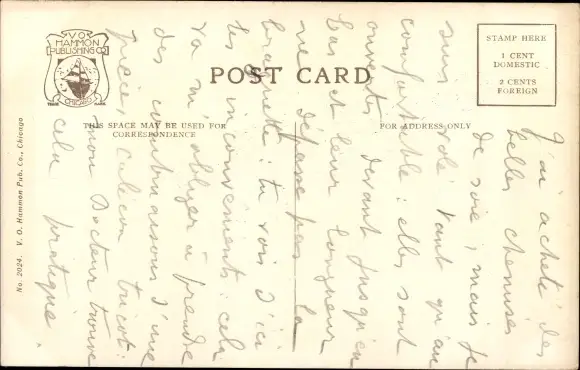 V. O.
HAMMON
PUBLISHING CO.
CHICAGO
TRADE MARK
POST CARD
STAMP HERE
1 CENT
DOMESTIC
2 CENTS
FOREIGN
THIS SPACE MAY BE USED FOR
CORRESPONDENCE
FOR ADDRESS ONLY
No. 2024. V. O. Hammon Pub. Co., Chicago
J'ai acheté des
belles chemises
de soie, mais je
suis volé tant qu'au
confortable: elles sont
ouvertes devant jusqu'en
bas et leur longueur
ne dépasse pas la
braguette: tu vois d'ici
les inconvénients: cela
va m'obliger à prendre
des combinaisons d'une
pièces caleçon tricot:
mon Docteur trouve
cela pratique.